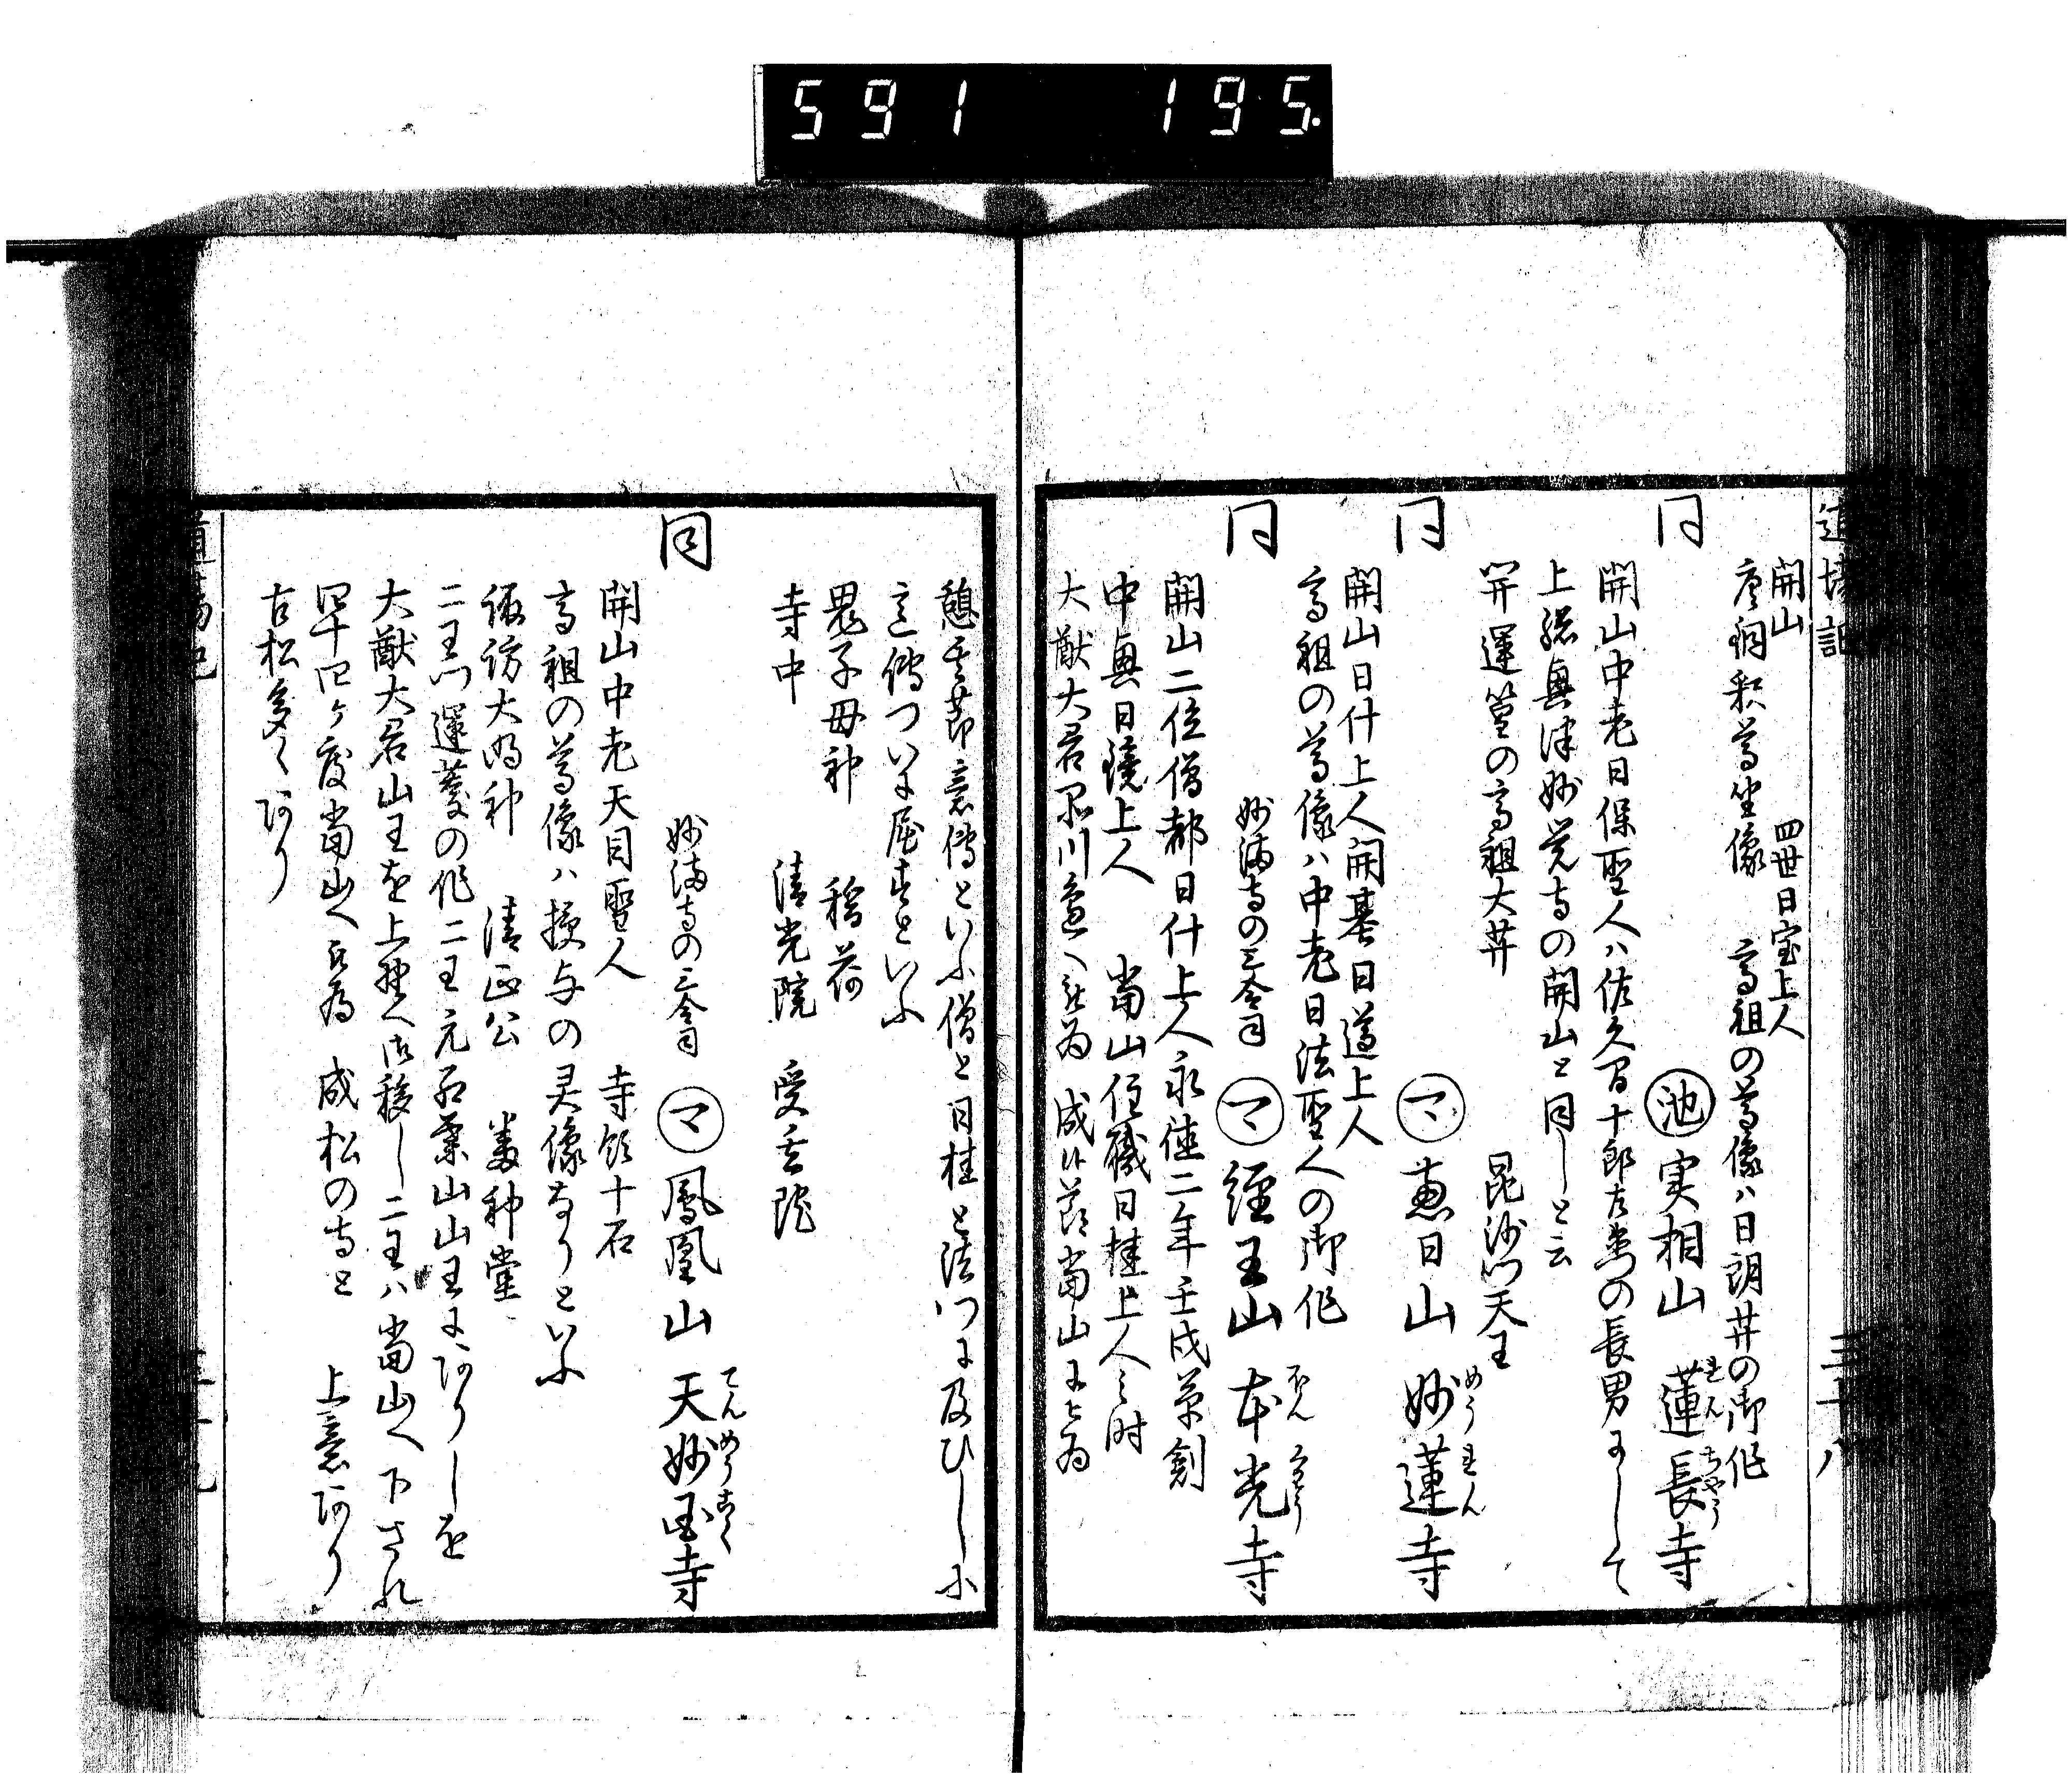 591 195.
道場記 三十八
開山 四世日宝上人
唐銅釈尊坐像 高祖の尊像ハ日朗井の御作
同 池 実相山 蓮長寺
開山中老日保聖人ハ佐久間十郎左衛の長男にして
上総奥津妙覚寺の開山と同しと云
開運篁の高祖大井 毘沙門天王
同 マ 蕙日山 妙蓮寺 めうれん
開山日什上人開基日遵上人
高祖の尊像ハ中老日法聖人の御作
同 妙満寺の三会司 マ 經王山 本光寺
開山二位僧都日什上人永徳二年壬戌草創
中興日鐃上人 當山住職日桂上人之時
大猷大君品川邉へ被為 成候節當山に被為
憩其節意傳といふ僧と日桂と法門に及ひしに
意傳ついに屈すといふ
鬼子母神 稲荷
寺中 清光院 受玄院
同 妙満寺の三会司 マ 鳳凰山 天妙国寺 てんめうこく
開山中老天目聖人 寺領十石
高祖の尊像ハ授与の灵像なりといふ
諏訪大明神 清正公 番神堂
二王門運慶の作二王元紅葉山山王にありしを
大猷大君山王を上野へ御移し二王ハ當山へ下され
四十四ヶ度當山へ被為 成松の寺と 上意あり
古松多くあり